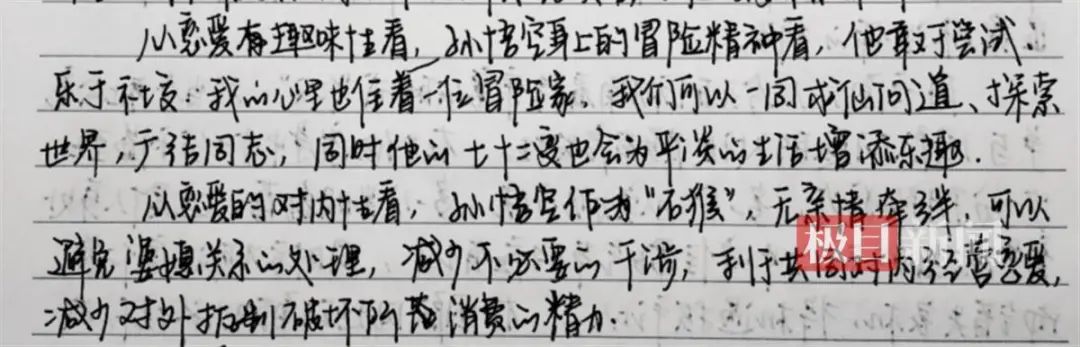 从恋爱有趣味性看，孙悟空身上的冒险精神看，他敢于尝试、
乐于社交．我的心里也住着一位冒险家．我们可以一同求仙问道、探索
世界，广结同志，同时他的七十二变也会为平淡的生活增添乐趣．
从恋爱的对内性看，孙悟空作为“石猴”，无亲情牵绊．可以
避免婆媳关系的处理，减少不必要的干涉，利于共同对内经营恋爱，
减少对外抵制破坏所 消费的精力．
极目新闻